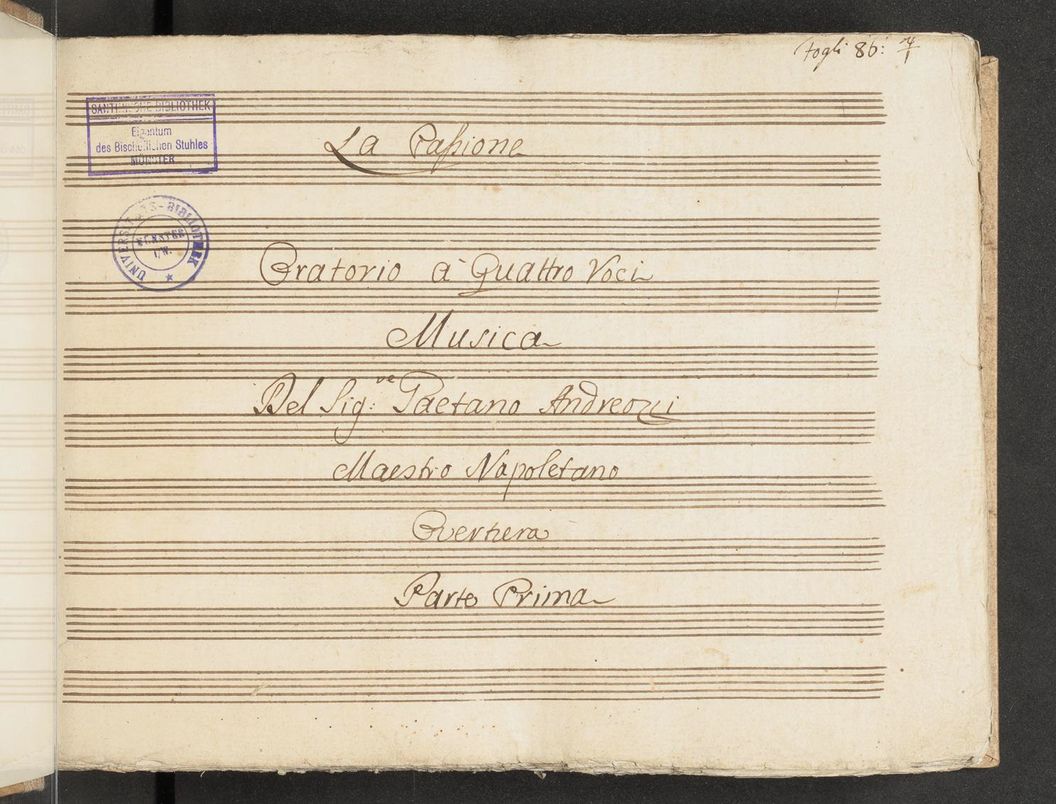 fogli 86: 
SANTINISCHE BIBLIOTHEK
Eigentum
des Bischöflichen Stuhles
MÜNSTER
La Paſsione
UNIVERSITÄTS-BIBLIOTHEK
MÜNSTER
i/W.
Oratorio à Quattro Voci
Musica
Del Sig:re Gaetano Andreozzi
Maestro Napoletano
Overtura
Parte Prima